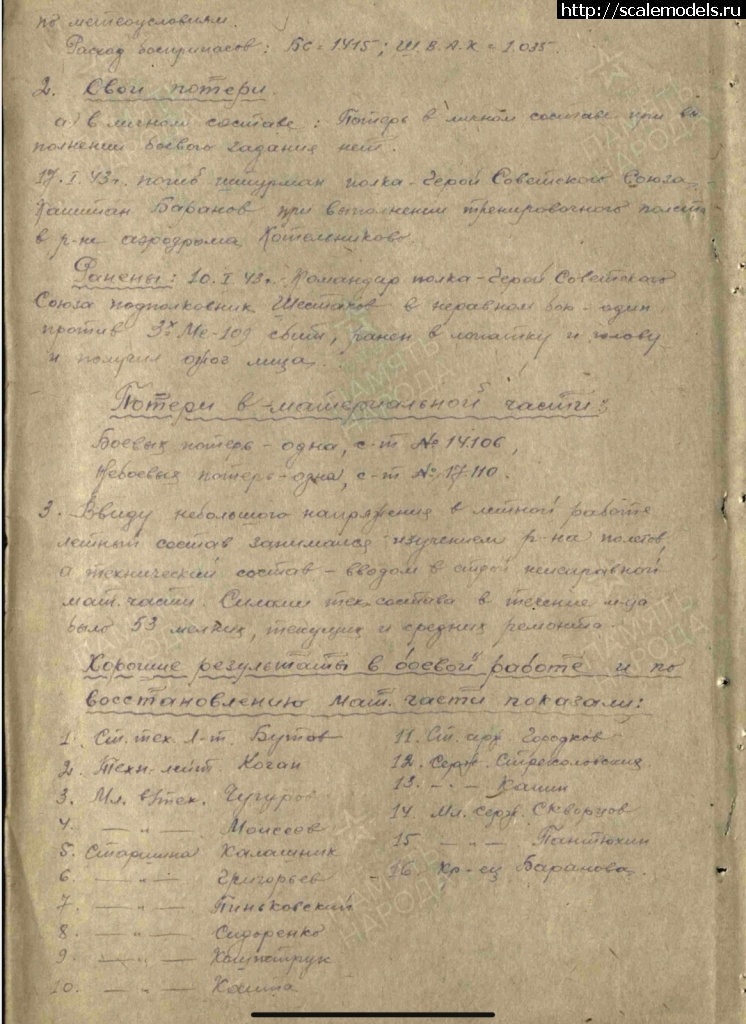 http://scalemodels.ru
по метеоусловиям.
Расход боеприпасов: БС = 1415; Ш.В.А.К = 1.035.
2. Свои потери.
а) в личном составе: Потерь в личном составе при вы
полнении боевого задания нет.
17.I.43г. погиб штурман полка - Герой Советского Союза
Капитан Баранов при выполнении тренировочного полета
в р-не аэродрома Котельниково
Ранены: 10.I 43г. Командир полка - Герой Советского
Союза подполковник Шестаков в неравном бою - один
против 3х Ме-109 сбит, ранен в лопатку и голову
и получил ожог лица.
Потери в материальной части:
Боевых потерь - одна, с-т № 14106,
Небоевых потерь - одна, с-т № 17110.
3. Ввиду небольшого напряжения в летной работе
летный состав занимался изучением р-на полетов,
а технический состав - вводом в строй неисправной
мат. части. Силами тех.состава в течение м-ца
было 53 мелких, текущих и средних ремонта.
Хорошие результаты в боевой работе и по
восстановлению мат. части показали:
1. Ст. тех. л-т. Бутов
2. Техн.-лейт. Коган
3. Мл. в/тех. Чугуров
4. — " — Моисеев
5. Старшина Калашник
6 — " — Григорьев
7 — " — Пиньковский
8 — " — Сидоренко
9 — " —
10. — " —
11. Ст. серж. Городков
12. Серж.
13. - " - Капин
14 Мл. серж. Скворцов
15 — " — Пантюхин
16. Кр-ец Баранова.
ПАМЯТЬ
НАРОДА